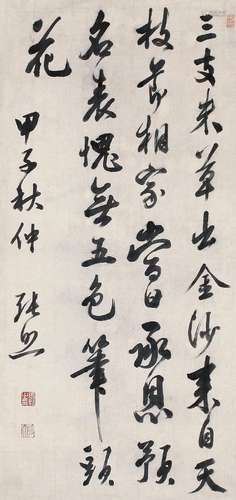 三支朱草出金沙來自天
枝節相家當日承恩預
名表愧無五色筆頭
花
甲子秋仲 張照